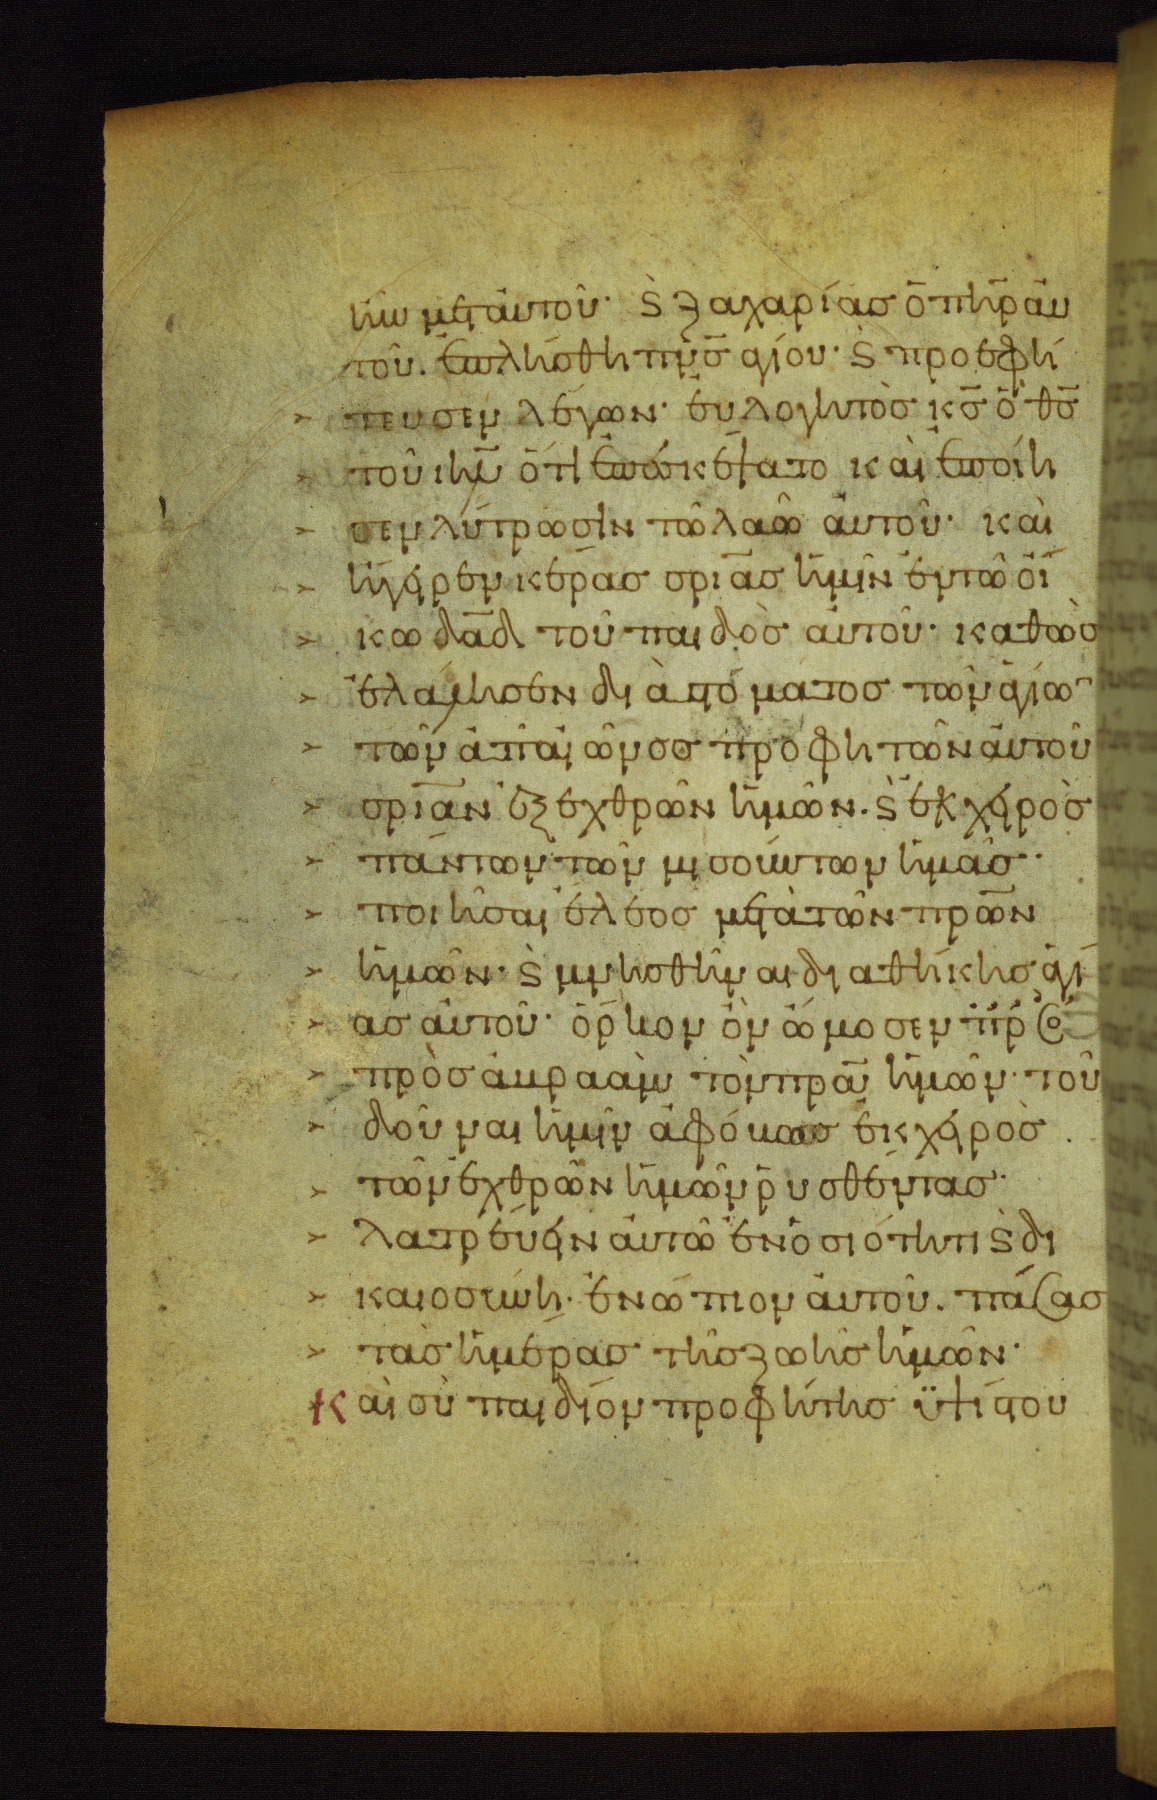 ἦν μετ' αὐτοῦ· ϗ ζαχαρίας ὁ π̅η̅ρ̅ αὐ
τοῦ. ἐπλήσθη π̅ν̅ς̅ ἁγίου· ϗ προεφή
τευσεν λέγων· εὐλογητὸς κ̅ς̅ ὁ θ̅ς̅
τοῦ ι̅η̅λ̅ ὅτι ἐπεσκέψατο καὶ ἐποίη
σεν λύτρωσιν τῶ λαῶ αὐτοῦ· καὶ
ἤγειρεν κέρας σ̅ρ̅ι̅α̅ς ἡμῖν ἐν τῶ οἴ
κω δ̅α̅δ̅ τοῦ παιδὸς αὐτοῦ· καθὼς
ἐλάλησεν διὰ στόματος τῶν ἁγίω̅
τῶν ἀπ' αἰῶνος προφητῶν αὐτοῦ
σ̅ρ̅ι̅α̅ν ἐξ ἐχθρῶν ἡμῶν. ϗ ἐκ χειρὸς
πάντων τῶν μισούντων ἡμᾶς·
ποιῆσαι ἔλεος μετὰ τῶν π̅ρ̅ω̅ν
ἡμῶν· ϗ μνησθῆναι διαθήκης ἁγί
ας αὐτοῦ· ὅρκον ὃν ὤμοσεν
πρὸς ἀβραὰμ τὸν π̅ρ̅α̅ ἡμῶν· τοῦ
δοῦναι ἡμῖν ἀφόβως ἐκ χειρὸς
τῶν ἐχθρῶν ἡμῶν ῥυσθέντας·
λατρεύειν αὐτῶ ἐν ὁσιότητι ϗ δι
καιοσύνη· ἐνώπιον αὐτοῦ. πάσας
τὰς ἡμέρας τῆς ζωῆς ἡμῶν·
Καὶ σὺ παιδίον προφήτης ὑψίστου